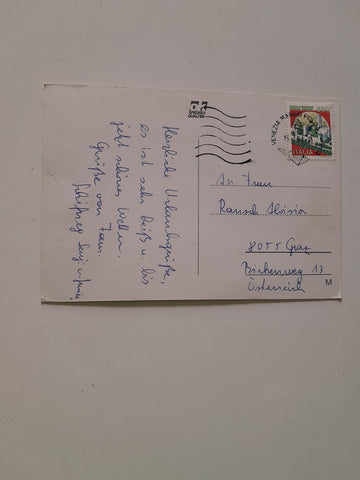 Herzliche Urlaubsgrüße,
es ist sehr heiß u. bis
jetzt schönes Wetter.
Grüße von Fam.
ITALIA
An Frau
Rausch Aloisia
8055 Graz
Birkenweg 13
Österreich
M